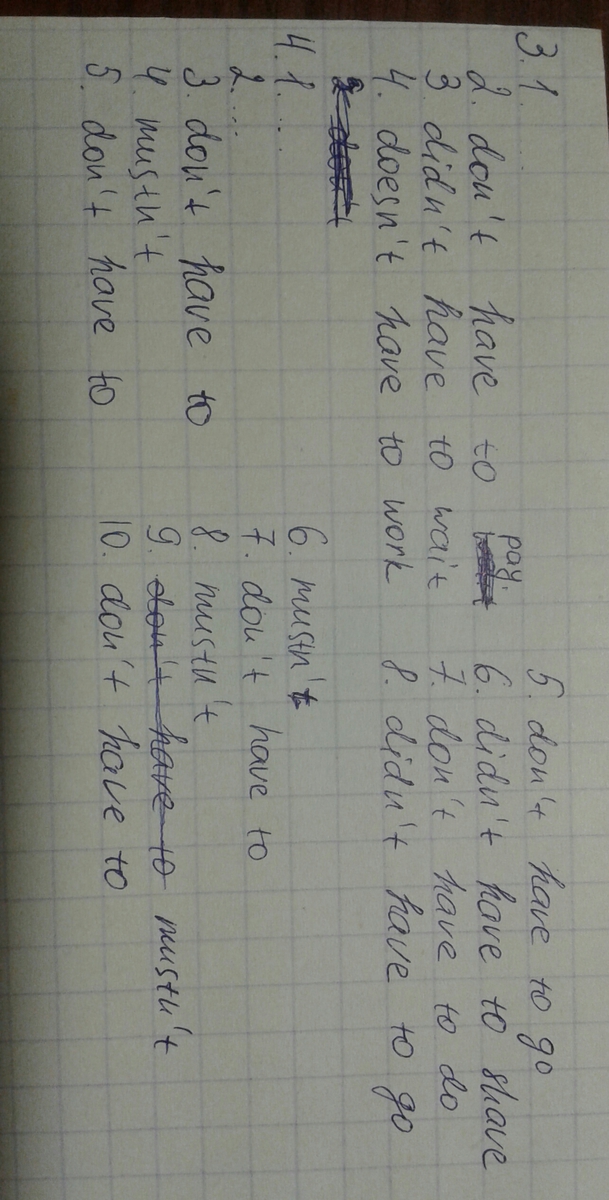 3. 1. ...
2. don't have to pay.
3 didn't have to wait
4. doesn't have to work
5. don't have to go
6. didn't have to shave
7. don't have to do
8. didn't have to go
4. 1. ...
2. ...
3. don't have to
4. mustn't
5. don't have to
6. mustn't
7. don't have to
8. mustn't
9. don't have to mustn't
10. don't have to